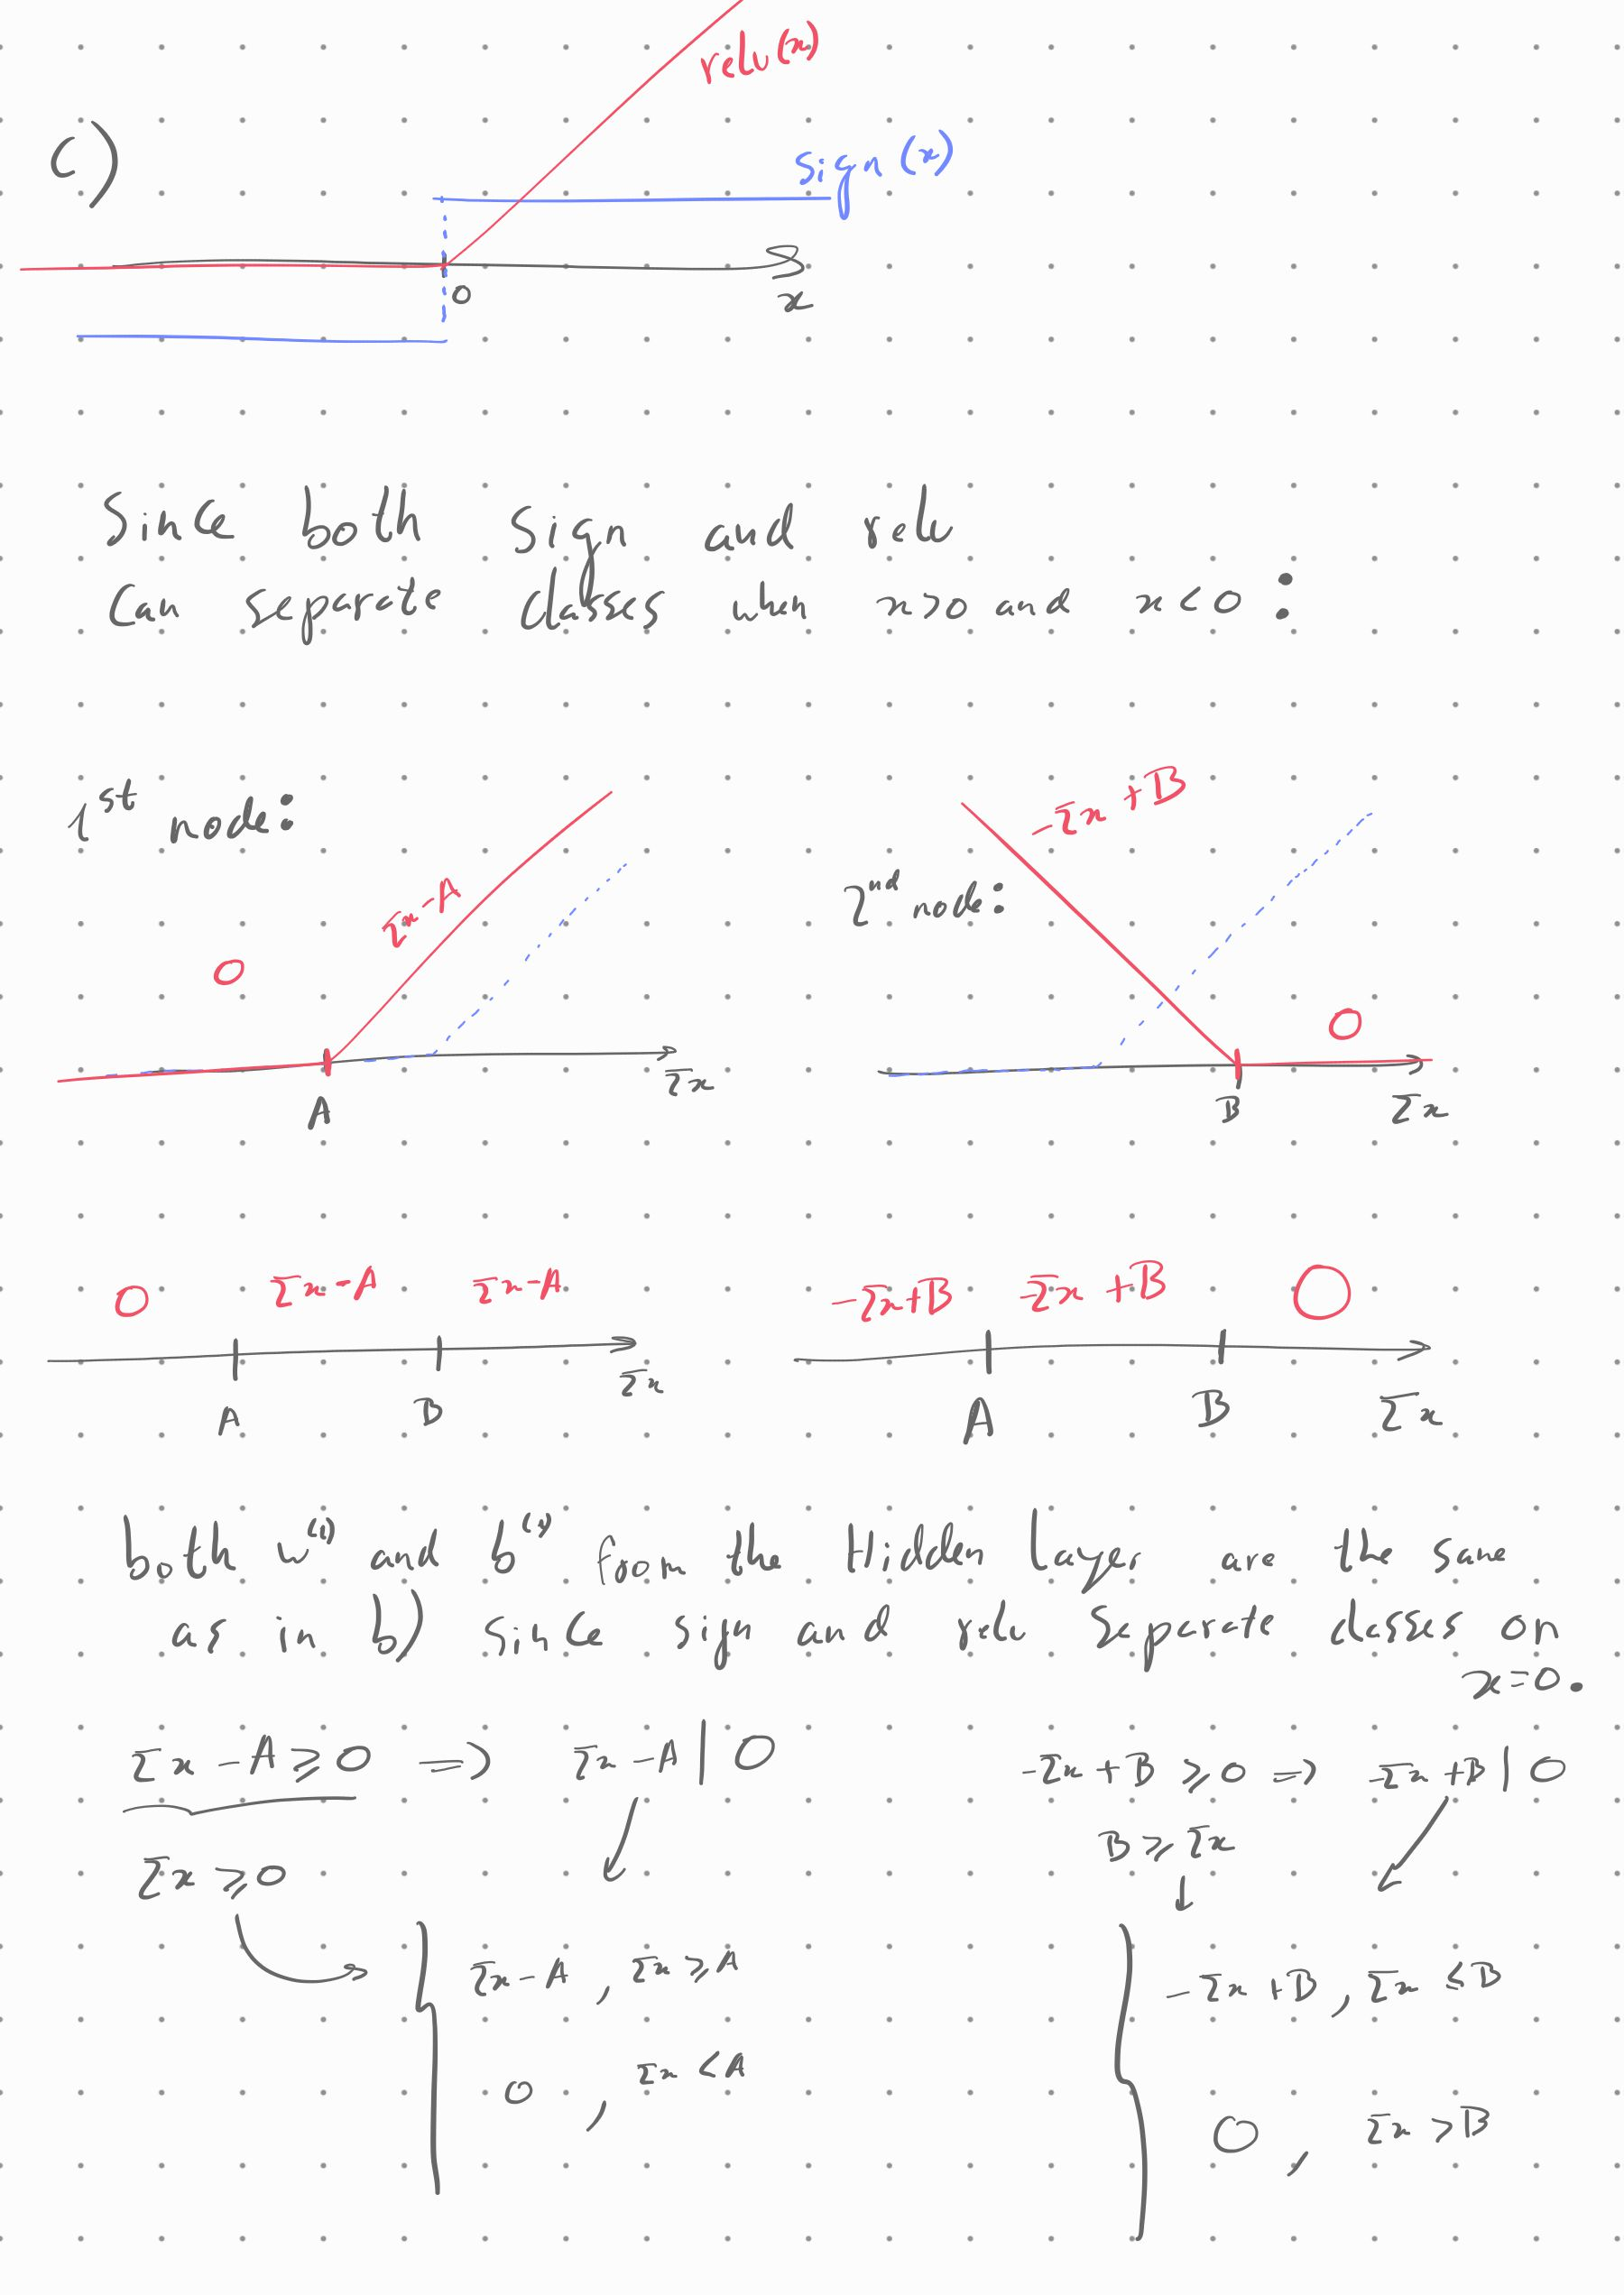 relu(x)
c)
sign(x)
0
x
Since both sign and relu
can separate classes when x>0 and x<0 :
1st node:
Σx-A
0
A
Σx
-Σx+B
2nd node:
0
B
Σx
0 Σx-A Σx-A
A B Σx
-Σx+B -Σx+B 0
A B Σx
both w(1) and b(1) from the Hidden layer are the same
as in b) since sign and relu separate classes on
x=0.
Σx-A⩾0 => Σx-A | 0
Σx⩾0
Σx-A , Σx⩾A
0 , Σx<A
-Σx+B⩾0 => -Σx+B | 0
B⩾Σx
-Σx+B , Σx≤B
0 , Σx>B